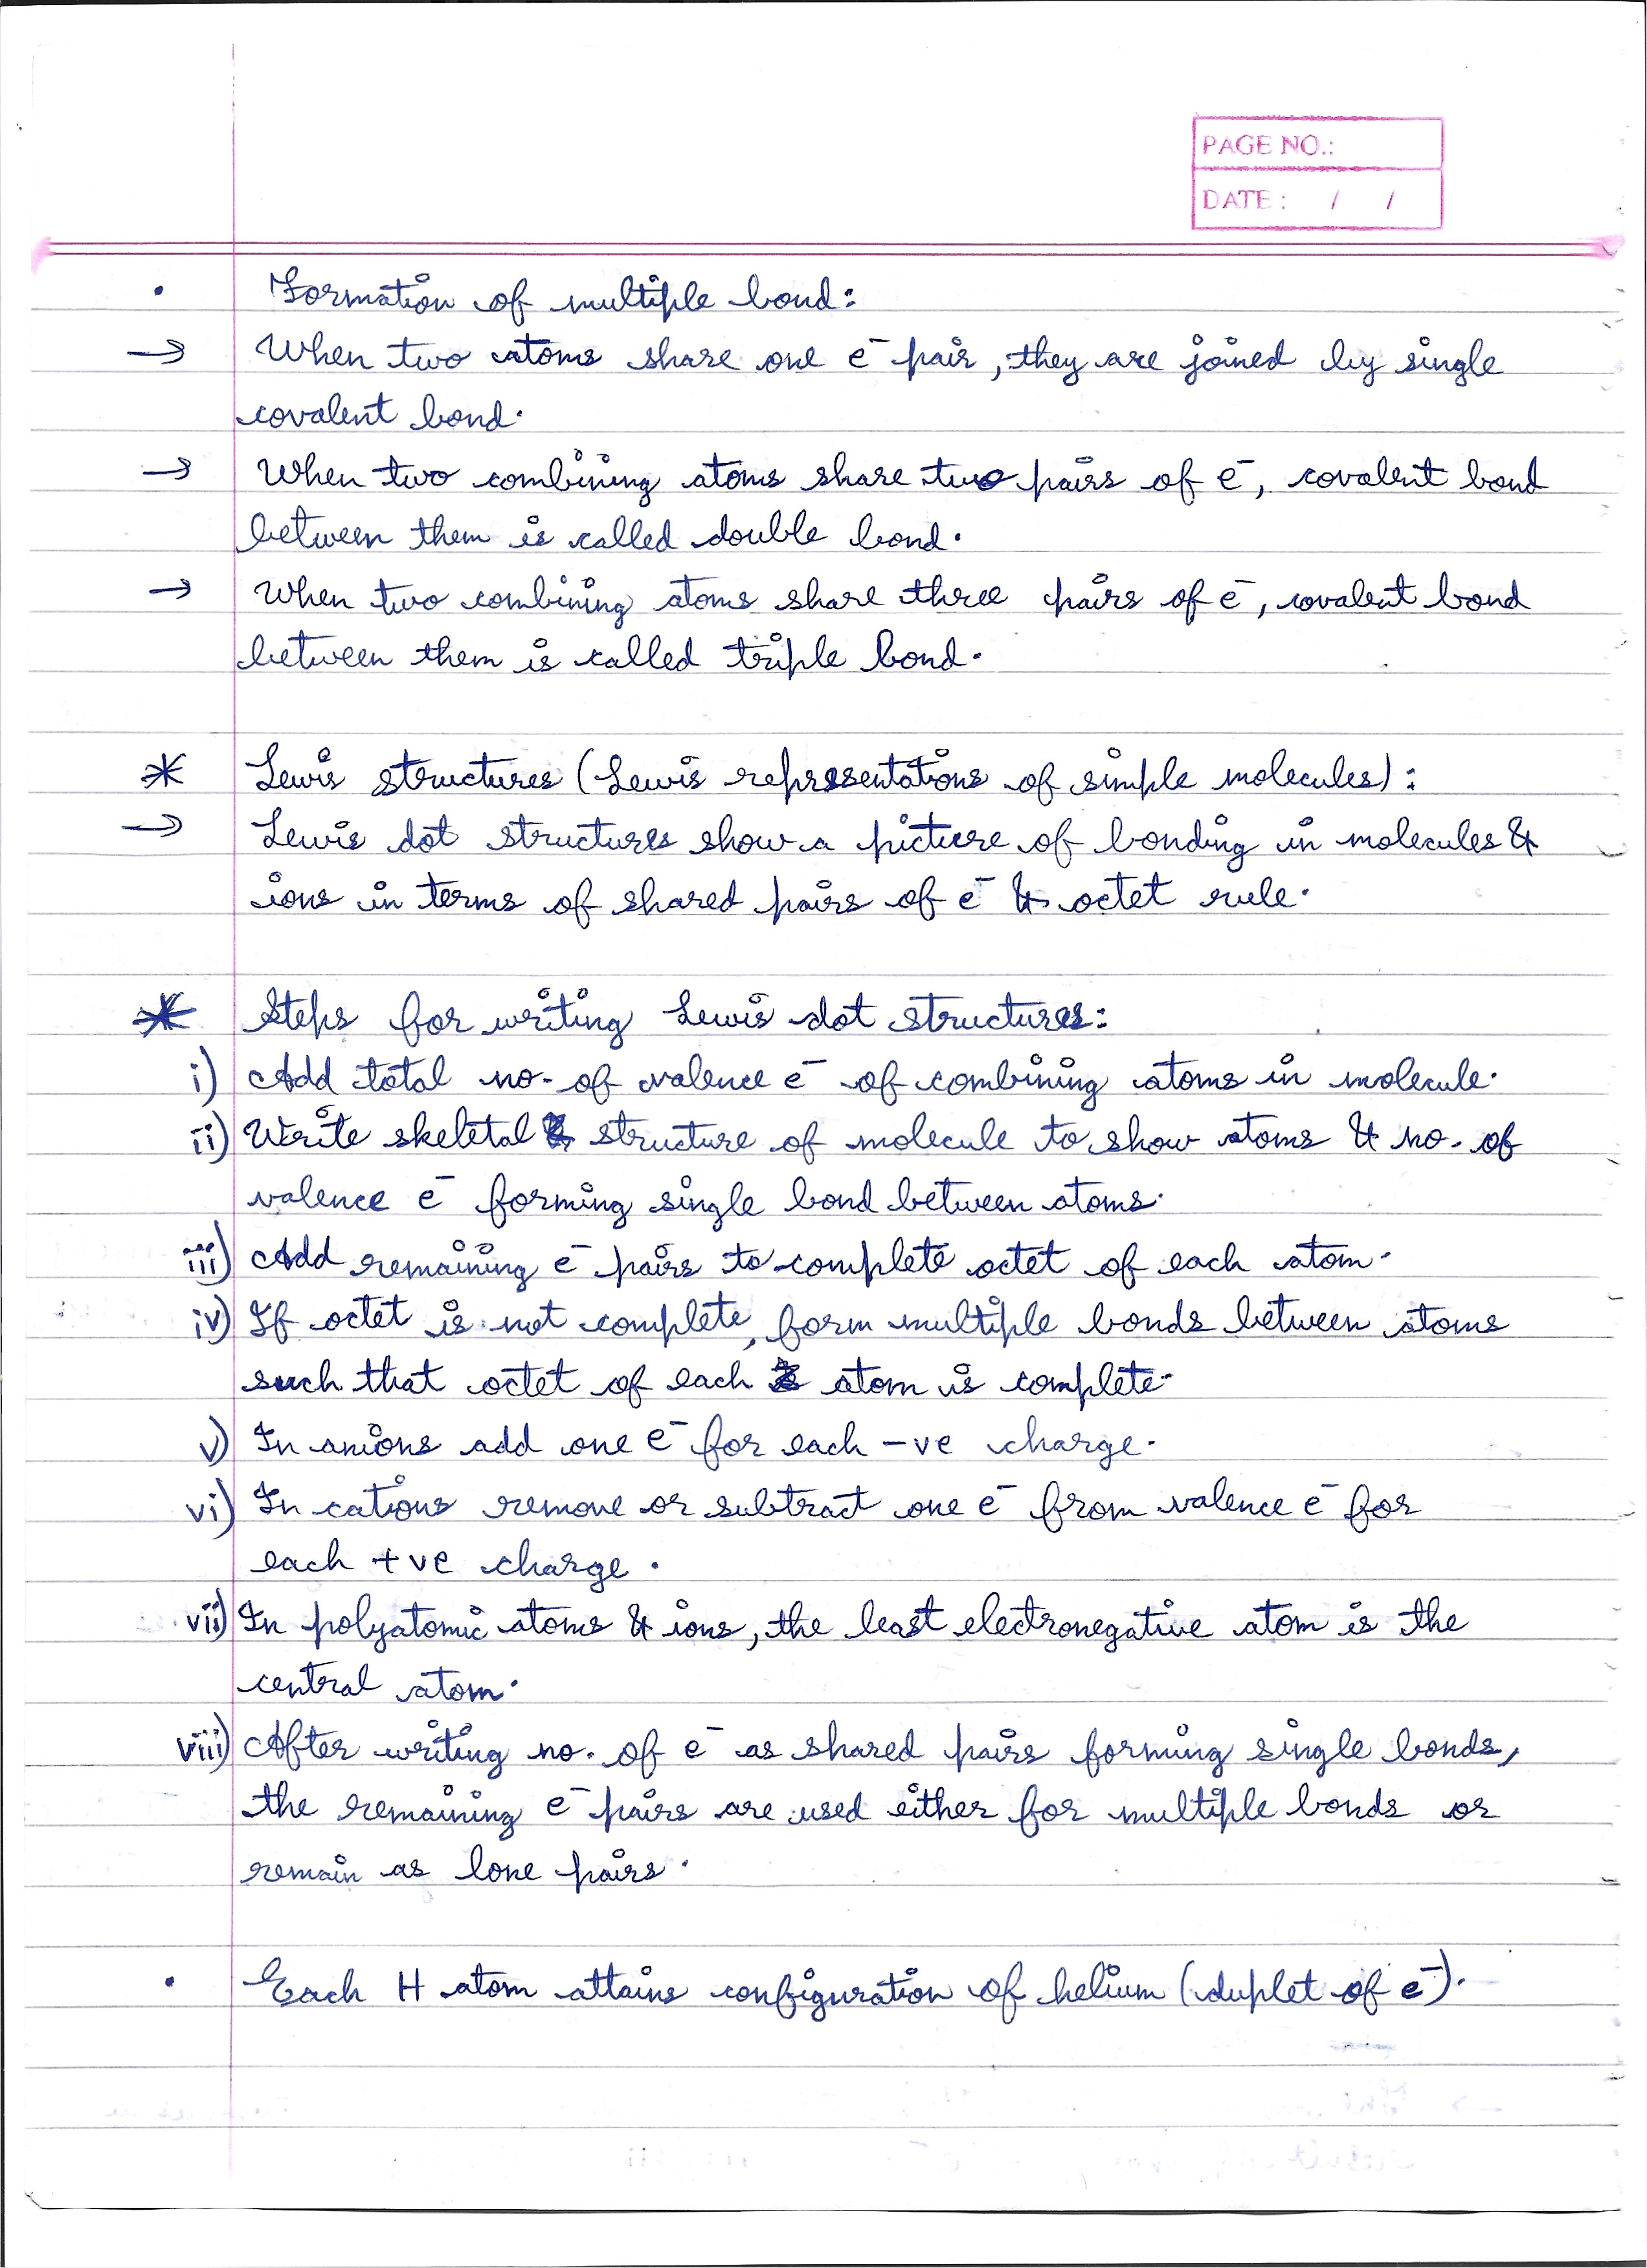 PAGE NO.:
DATE : / /
• Formation of multiple bond:
→ When two atoms share one e⁻ pair, they are joined by single
covalent bond.
→ When two combining atoms share two pairs of e⁻, covalent bond
between them is called double bond.
→ When two combining atoms share three pairs of e⁻, covalent bond
between them is called triple bond.
* Lewis structures (Lewis representations of simple molecules):
→ Lewis dot structures show a picture of bonding in molecules &
ions in terms of shared pairs of e⁻ & octet rule.
* Steps for writing Lewis dot structures:
i) Add total no. of valence e⁻ of combining atoms in molecule.
ii) Write skeletal structure of molecule to show atoms & no. of
valence e⁻ forming single bond between atoms.
iii) Add remaining e⁻ pairs to complete octet of each atom.
iv) If octet is not complete, form multiple bonds between atoms
such that octet of each atom is complete.
v) In anions add one e⁻ for each -ve charge.
vi) In cations remove or subtract one e⁻ from valence e⁻ for
each +ve charge.
vii) In polyatomic atoms & ions, the least electronegative atom is the
central atom.
viii) After writing no. of e⁻ as shared pairs forming single bonds,
the remaining e⁻ pairs are used either for multiple bonds or
remain as lone pairs.
• Each H atom attains configuration of helium (duplet of e⁻).